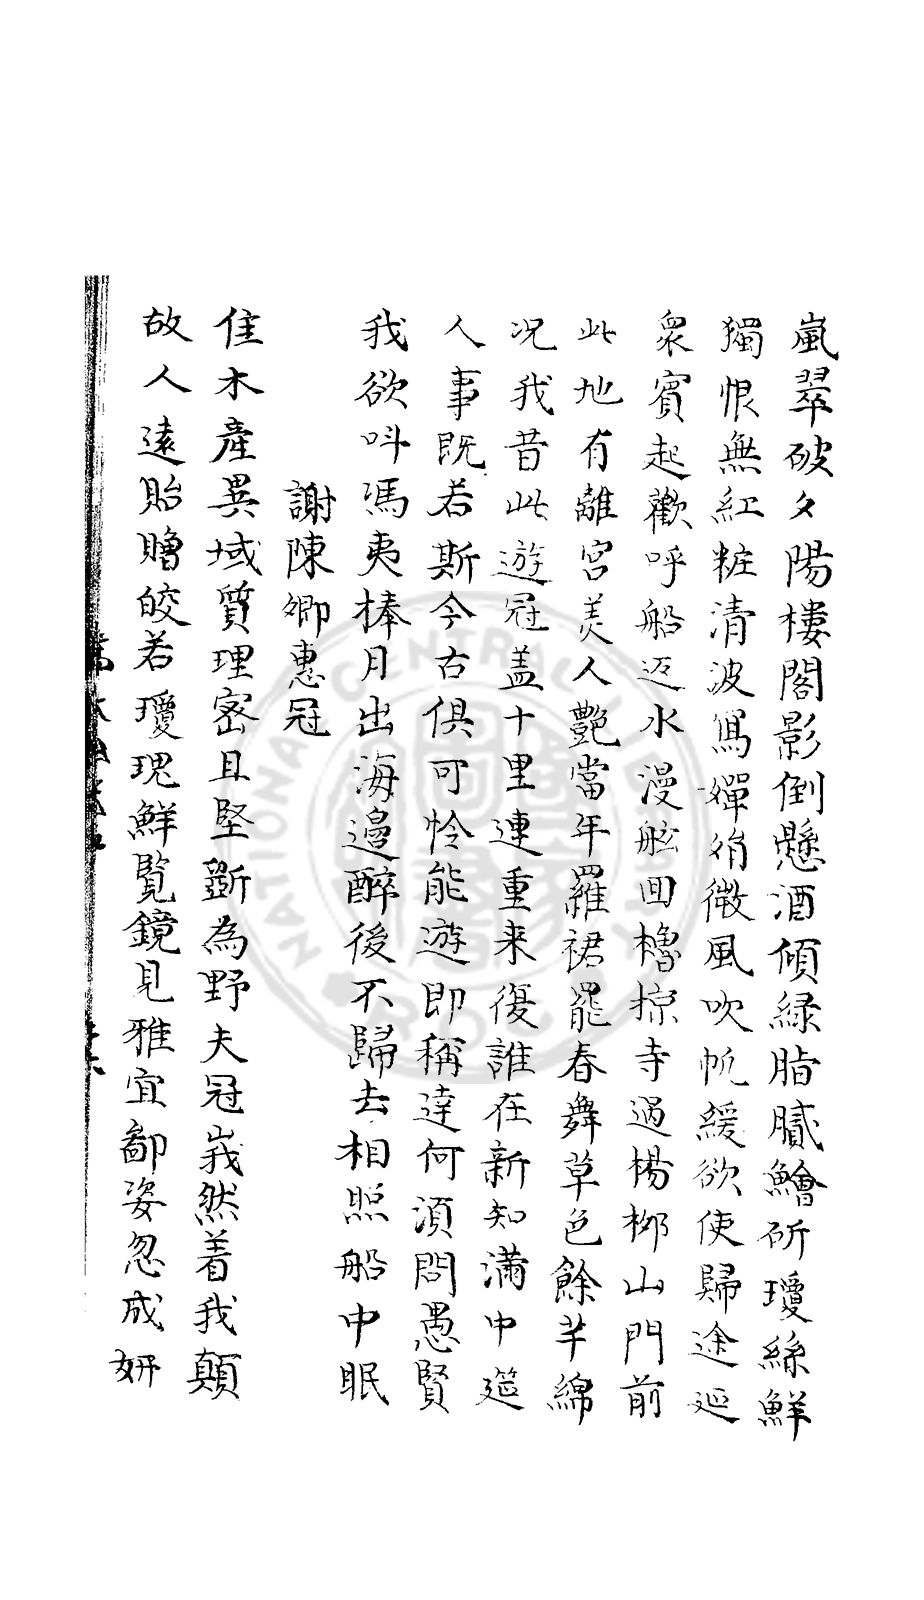 嵐翠破夕陽樓閣影倒懸酒傾緑脂膩鱠斫瓊絲鮮
獨恨無紅粧清波寫嬋娟微風吹帆緩欲使歸途延
衆賓起歡呼船迈水漫舷回櫓掠寺過楊柳山門前
此地有離宮美人艷當年羅裙罷春舞草色餘芊綿
况我昔此遊冠盖十里連重来復誰在新知滿中筵
人事既若斯今古俱可怜能遊即稱達何須問愚賢
我欲呌馮夷棒月出海邊醉後不歸去相照船中眠
謝陳卿惠冠
佳木產異域質理密且堅斵為野夫冠峩然着我顛
故人遠貽贈皎若瓊瑰鮮覧鏡見雅宜鄙姿忽成妍
NATIONAL CENTRAL LIBRARY
R.O.C.